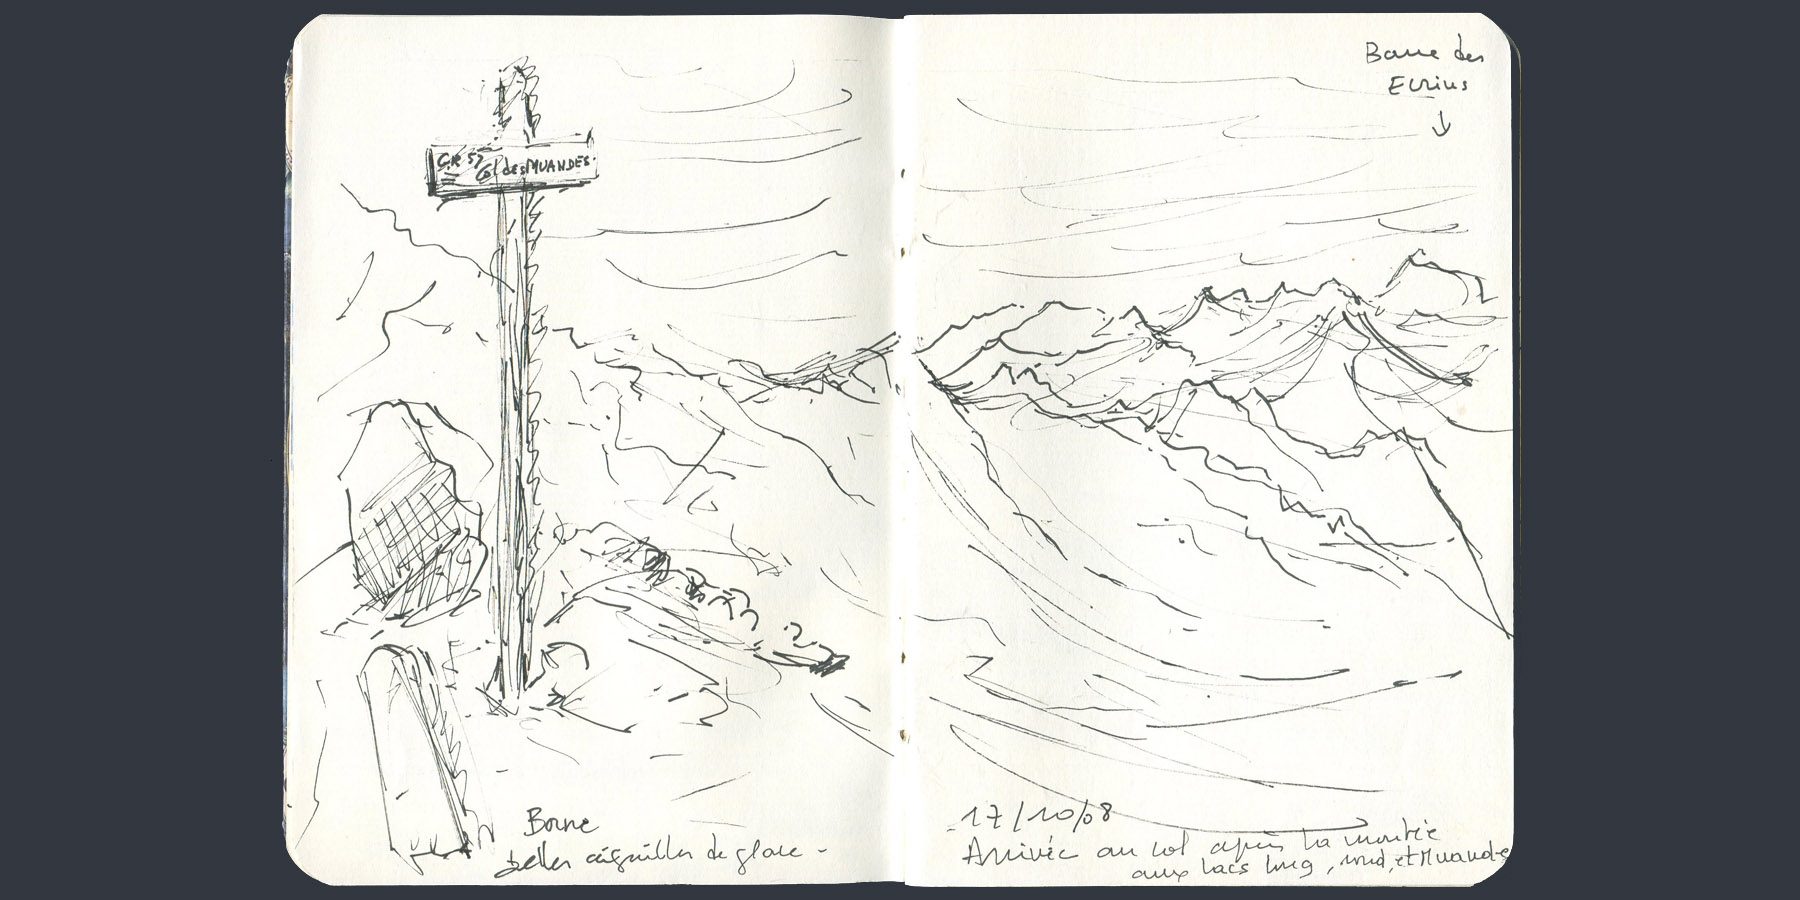 GR 57
Col des MUANDES
Borne
belles aiguilles de glace -
Barre des
Ecrins
17/10/08
Arrivée au col après la montée
aux lacs long, rond, et Muandes